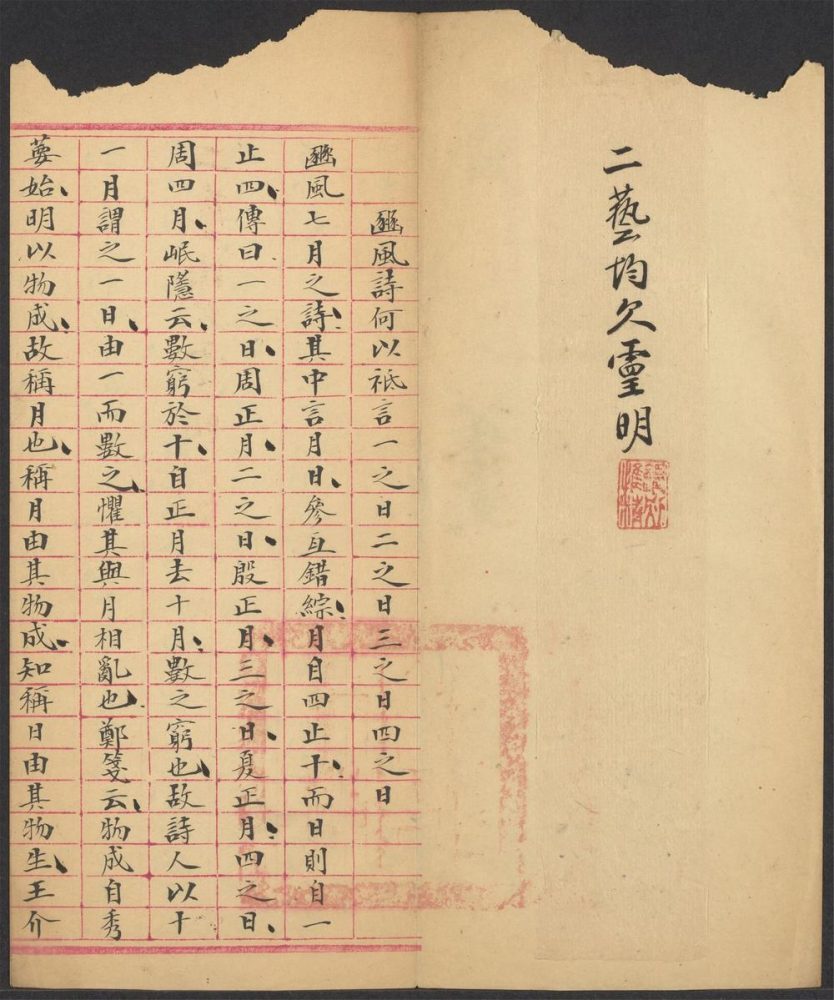 二藝均欠靈明
豳風詩何以祗言一之日二之日三之日四之日
豳風七月之詩其中言月日參互錯綜月自四止十而日則自一
止四傳曰一之日周正月二之日殷正月三之日夏正月四之日
周四月岷隱云數窮於十自正月去十月數之窮也故詩人以十
一月謂之一日由一而數之懼其與月相亂也鄭箋云物成自秀
葽始明以物成故稱月也稱月由其物成知稱日由其物生王介